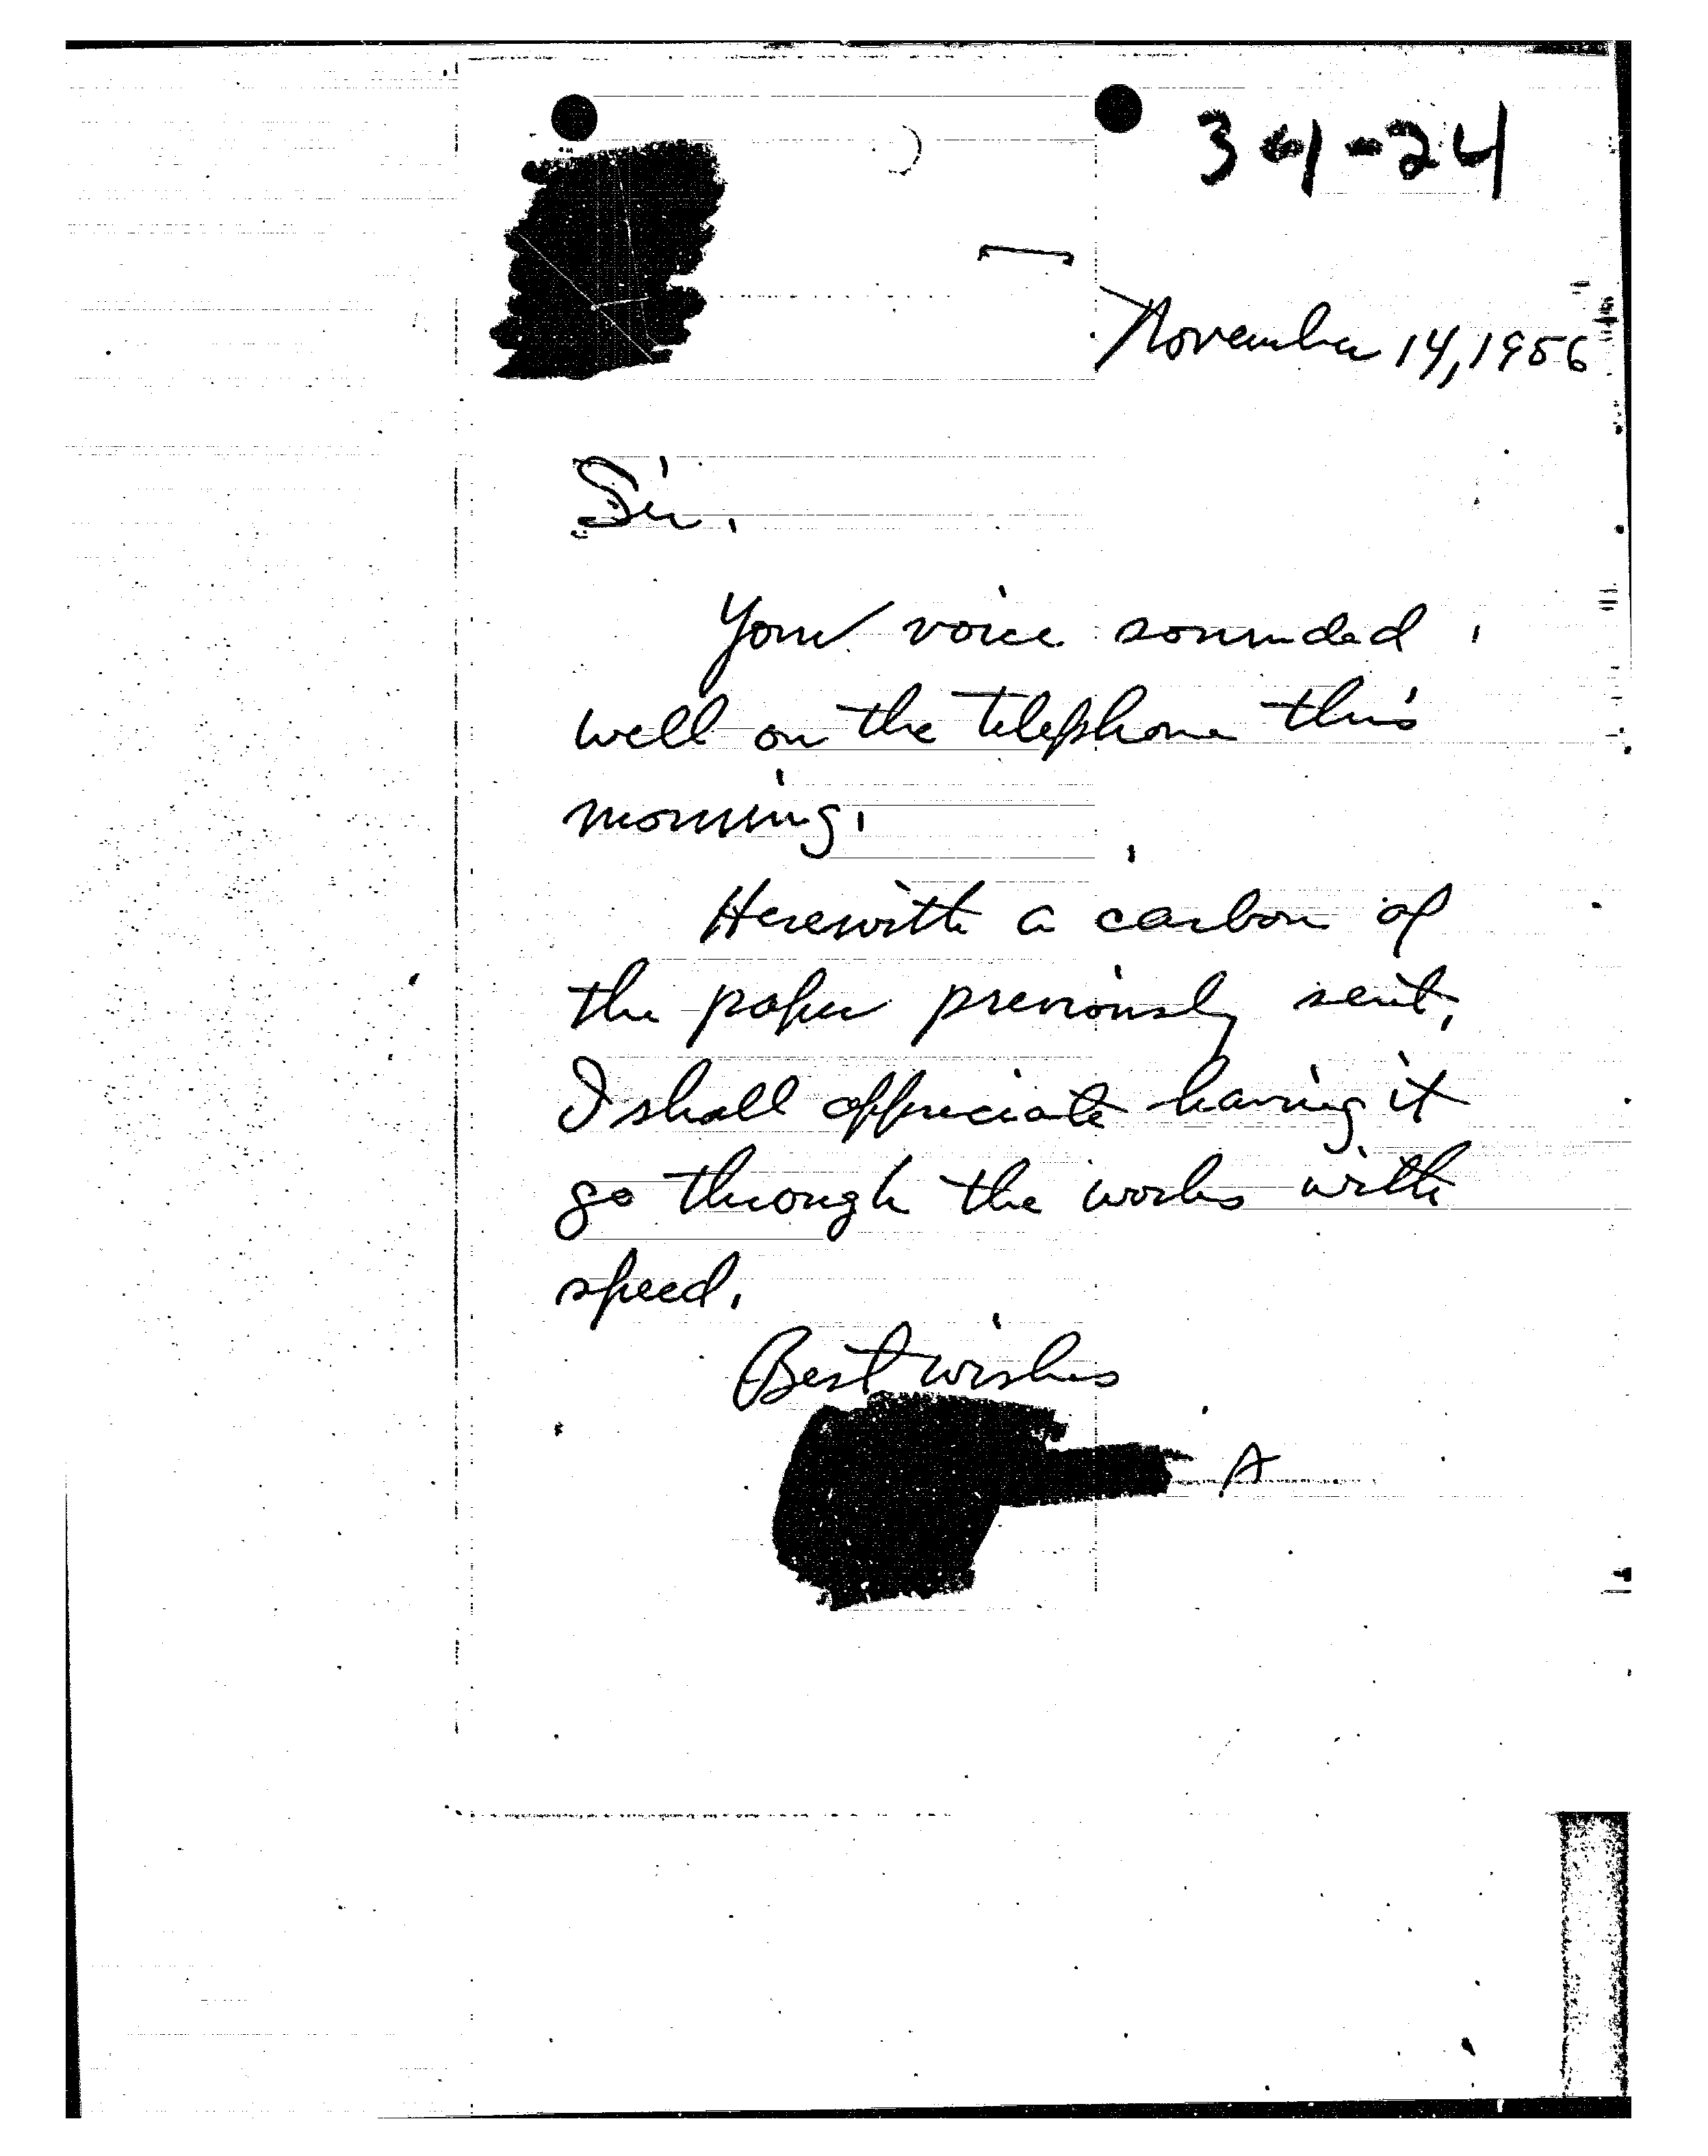 34-24
November 14, 1956
Sir.
Your voice sounded
well on the telephone this
morning.
Herewith a carbon of
the paper previously sent.
I shall appreciate having it
go through the works with
speed.
Best wishes
A